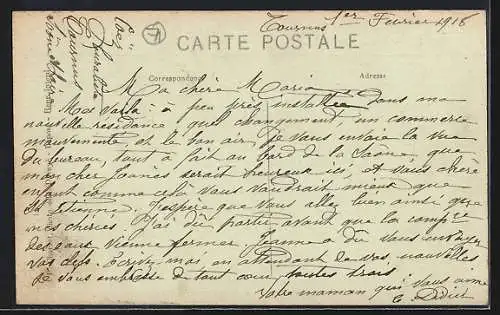 Tournus 1er Février 1918
CARTE POSTALE
Correspondance
Adresse
Ma chère Maria
Me voilà à peu près installée dans ma
nouvelle résidence quel changement, un commerce
mouvementé, et le bon air, je vous envoie la vue
du bureau, tout à fait au bord de la Saône, que
mon cher serait heureux ici, et vous chère
enfant comme cela vous vaudrait mieux que
St Etienne. J'espère que vous allez bien ainsi que
mes chéries. J'ai dû partir avant que la
des eaux Vienne fermer, Jeanne a dû vous envoyer
vos clefs. Ecrivez moi en attendant de vos nouvelles
Je vous embrasse de tout cœur toutes trois
Votre maman qui vous aime
Tournus
Saône